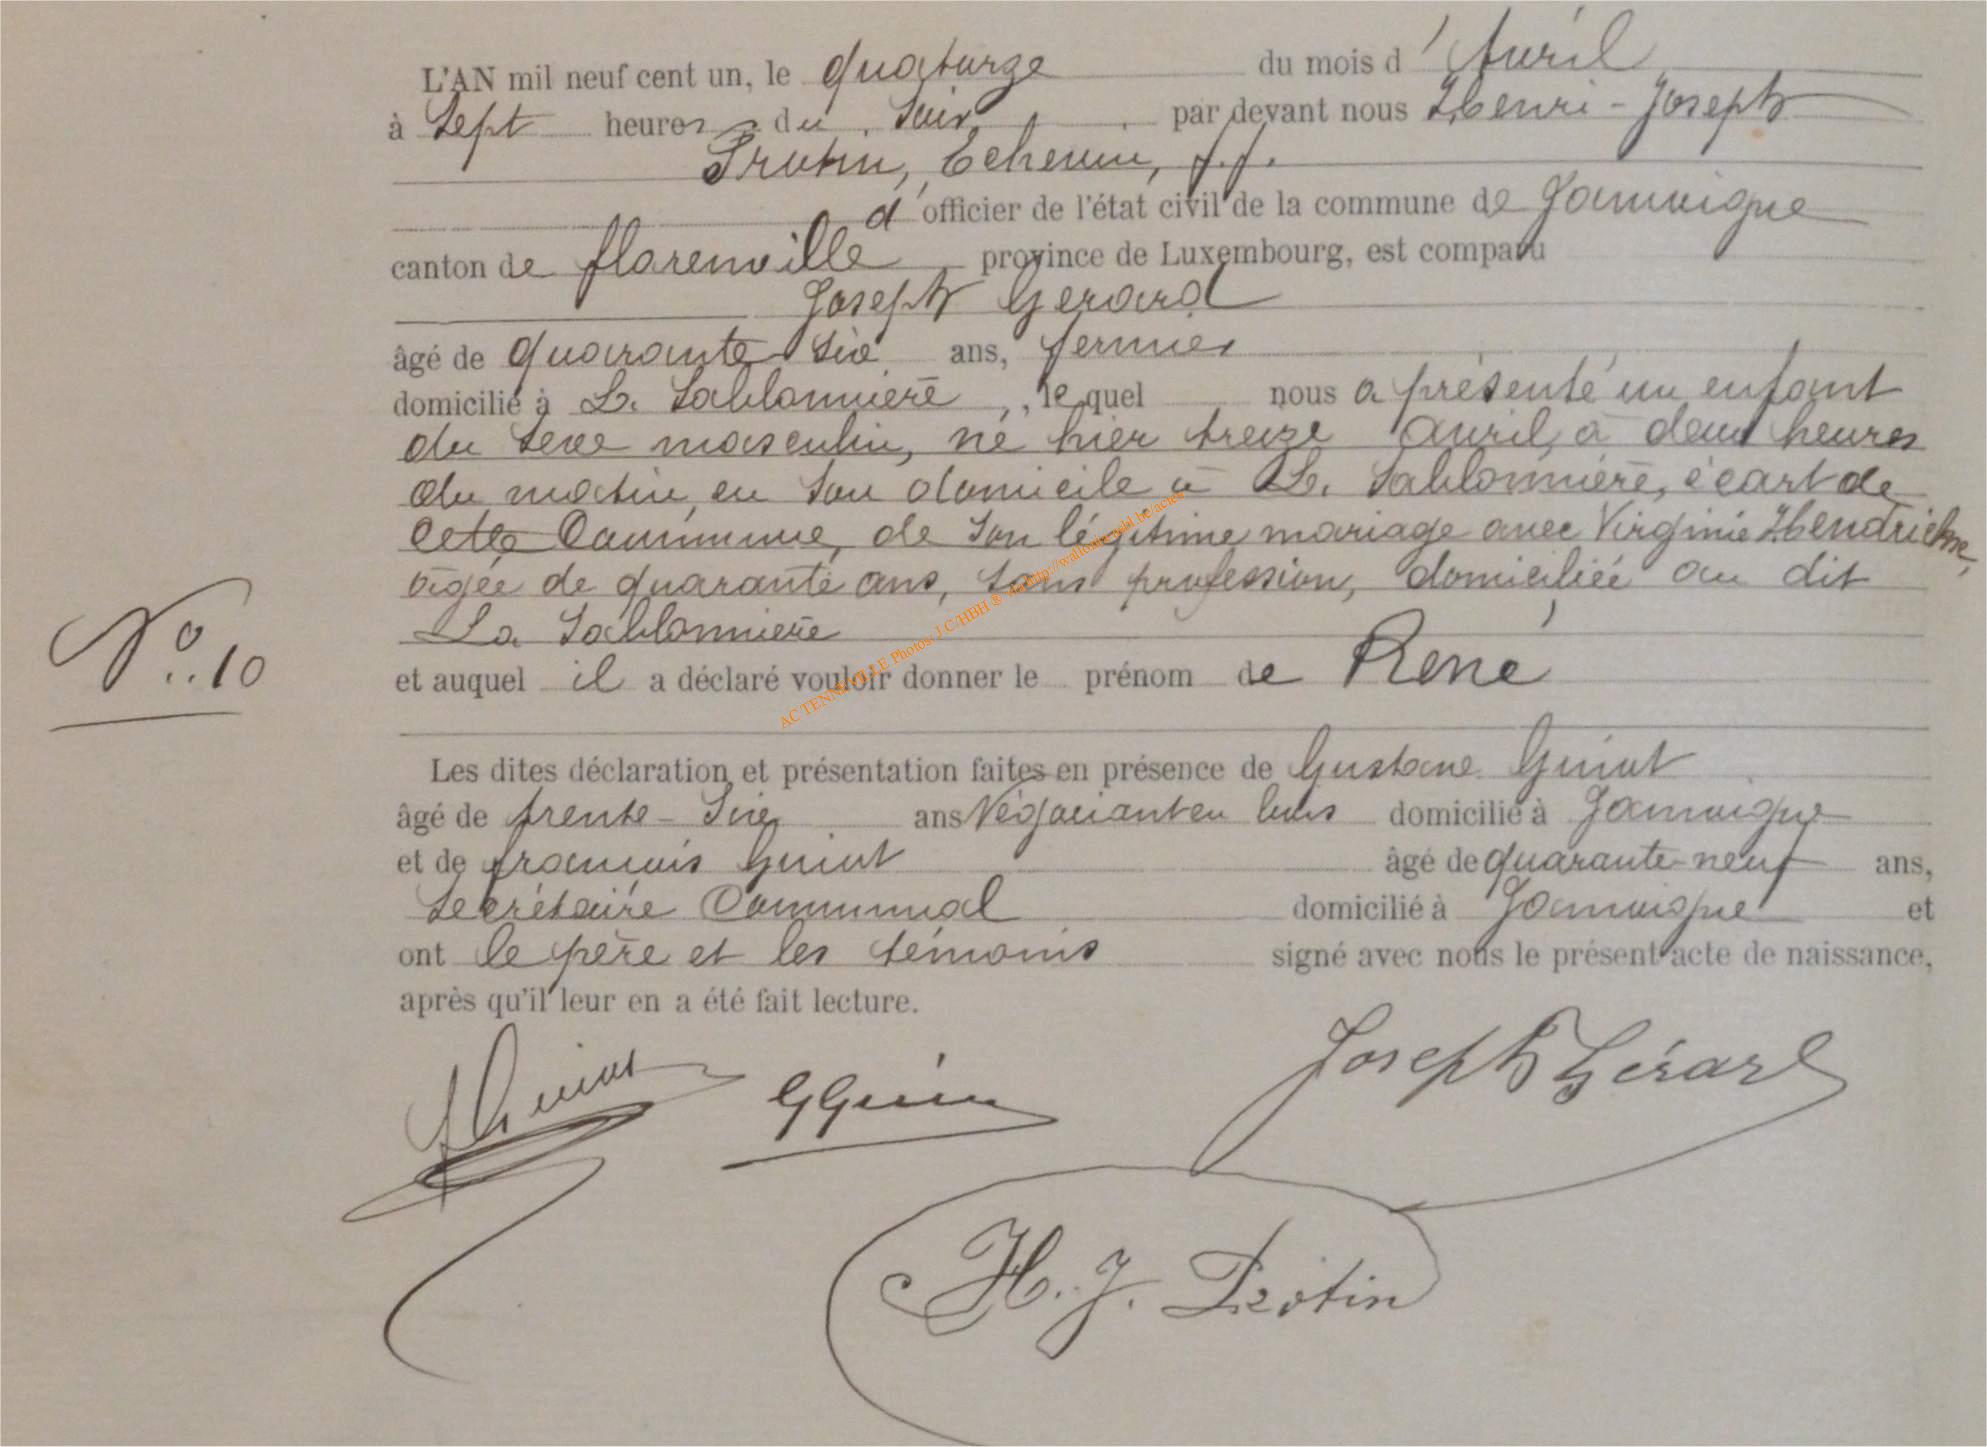 L'AN mil neuf cent un, le quatorze du mois d'Avril
à Sept heures du Soir par devant nous Henri-Joseph
Protin, Echevin, f.f.
d'officier de l'état civil de la commune de Jamoigne
canton de florenville province de Luxembourg, est comparu
Joseph Gerard
âgé de quarante six ans, fermier
domicilié à La Sablonnière, lequel nous a présenté un enfant
du sexe masculin, né hier treize avril, à deux heures
du matin, en son domicile à La Sablonnière, écart de
cette Commune, de son légitime mariage avec Virginie Hendrickx,
âgée de quarante ans, sans profession, domiciliée au dit
La Sablonnière
No. 10
et auquel il a déclaré vouloir donner le prénom de René
Les dites déclaration et présentation faites en présence de Gustave Guiot
âgé de trente-six ans Négociant en bois domicilié à Jamoigne
et de françois Guiot âgé de quarante-neuf ans,
Secrétaire Communal domicilié à Jamoigne et
ont le père et les témoins signé avec nous le présent acte de naissance,
après qu'il leur en a été fait lecture.
f Guiot GGuiot Joseph Gérard
H. J. Protin
AC TENNEVILLE Photos: J C/HBH ®